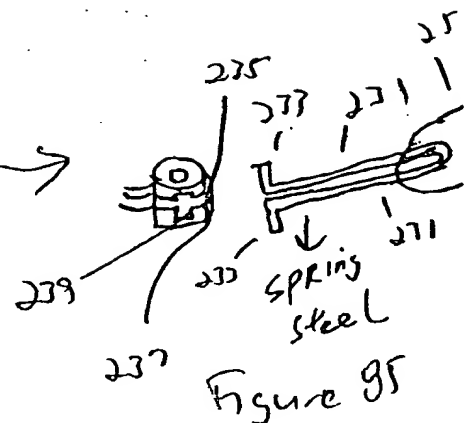 25
235
233
231
239
233
231
SPRing
steel
237
Figure 95